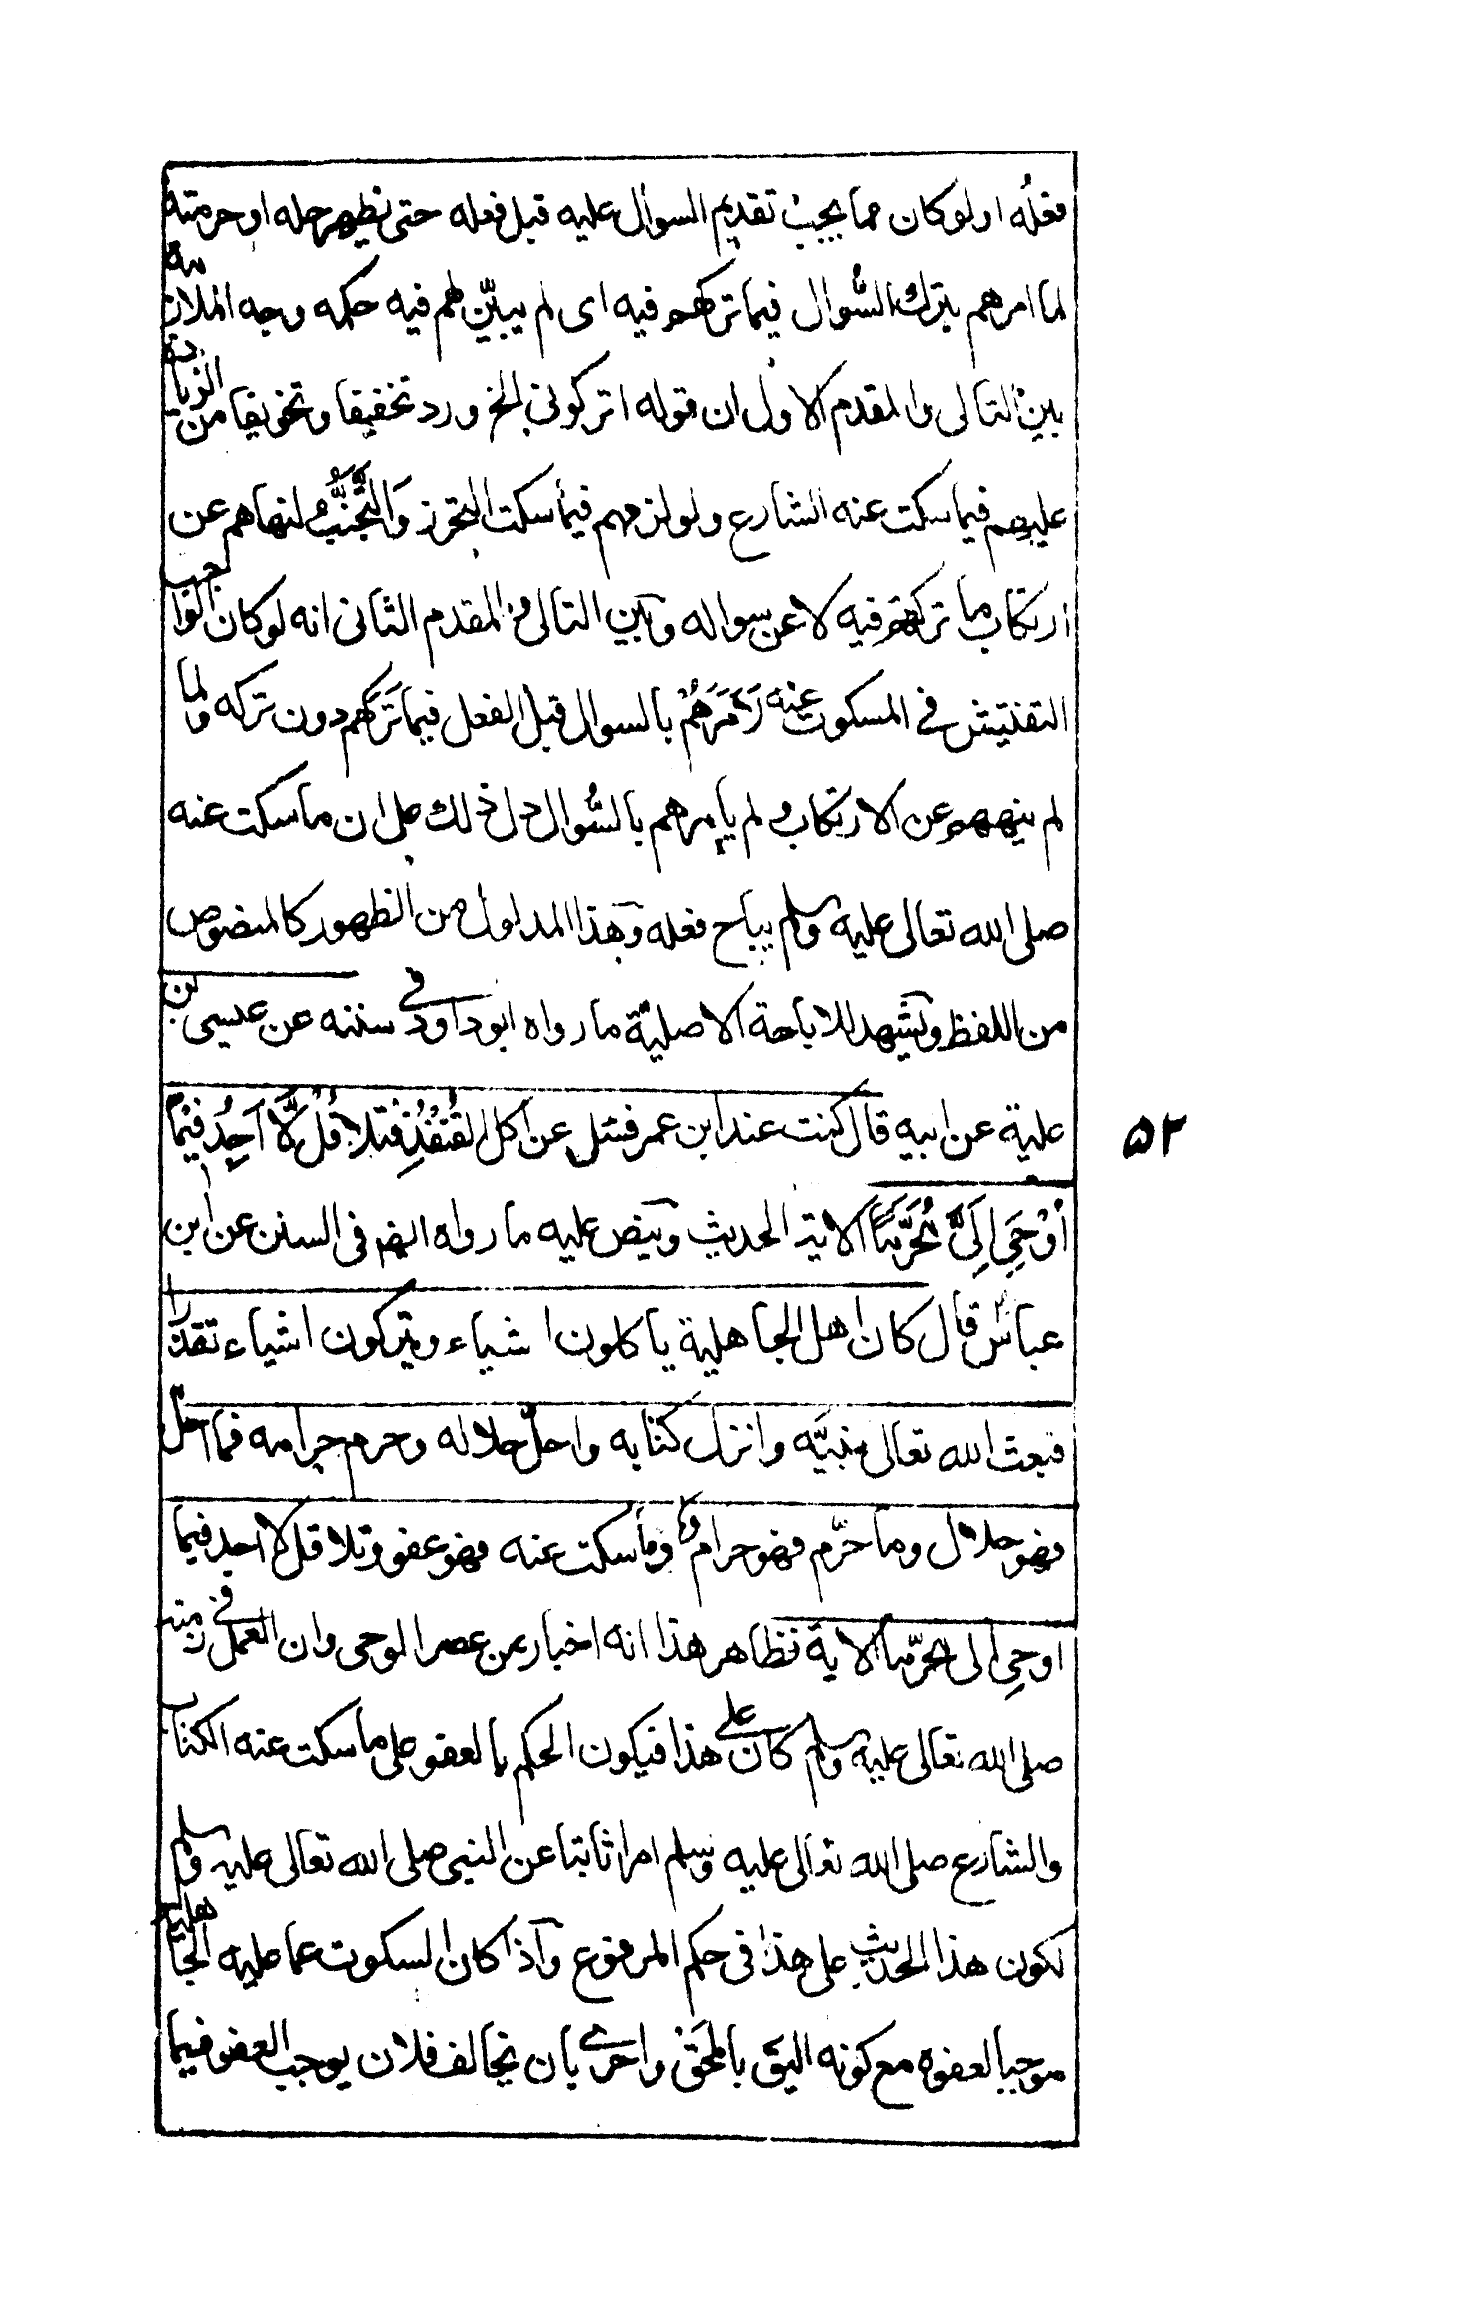 فعله او لو كان مما يجب تقديم السوال عليه قبل فعله حتى يظهر حله او حرمته
لما امرهم بترك السُّوال فيما تركهم فيه اى لم يبيّن لهم فيه حكمه وجه الملازمة
بين التالى والمقدم الاول ان قوله اتركونى الخ ورد تخفيفا وتخويفا من الزيادة
عليهم فيما سكت عنه الشارع ولو لزمهم فيما سكت التحرز وَالتَّجَنُّبُ لنهاهم عن
ارتكاب ما تركهم فيه لا عن سواله وبين التالى والمقدم الثانى انه لو كان الواجب
التفتيش فى المسكوت عنه لَاَمَرَهُمْ بالسوال قبل الفعل فيما تَرَكَهم دون تركه ولما
لم ينههم عن الارتكاب ولم يأمرهم بالسُّوال دل ذلك على ان ما سكت عنه
صلى الله تعالى عليه وسلم يباح فعله وهذا المدلول من الظهور كالمنصوص
من اللفظ ويشهد للاباحة الاصليّة ما رواه ابوداود فى سننه عن عيسى بن
علية عن ابيه قال كنت عند ابن عمر فسئل عن اكل القُنْفُذِ فتلا قُلْ لَّا اَجِدُ فِيْمَا
اُوْحِىَ اِلَىَّ مُحَرَّمًا الاية الحديث وينص عليه ما رواه ايضم فى السنن عن ابن
عباس قال كان اهل الجاهلية ياكلون اشياء ويتركون اشياء تقذرا
فبعث الله تعالى نبيَّه وانزل كتابه واحلّ حلاله وحرم حرامه فما احلّ
فهو حلال وما حرّم فهو حرام وما سكت عنه فهو عفو وتلا قل لا اجد فيما
اوحِى الى محرّما الاية فظاهر هذا انه اخبار من عصر الوحى وان العمل فى زمنه
صلى الله تعالى عليه وسلم كان على هذا فيكون الحكم بالعفو على ما سكت عنه الكتاب
والشارع صلى الله تعالى عليه وسلم امرا ثابتا عن النبى صلى الله تعالى عليه وسلم
لكون هذا الحديث على هذا فى حكم المرفوع واذا كان السكوت عما عليه الجاهلية
موجبا لعفوه مع كونه اليق بالمحق واحرى بان يخالف فلان يوجب العفو فيما
۵۲